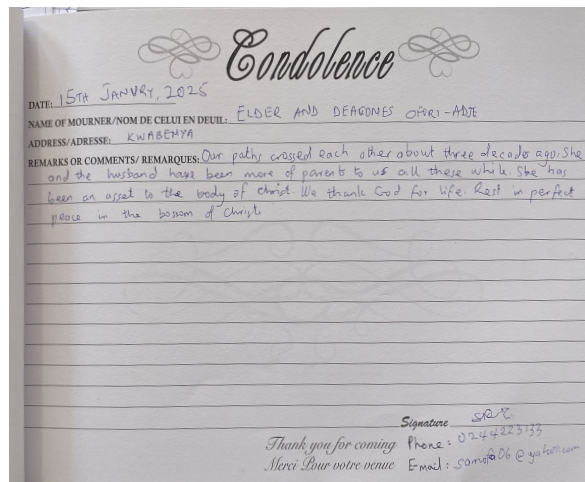 Condolence
DATE: 15TH JANVRY, 2025
NAME OF MOURNER/NOM DE CELUI EN DEUIL: ELDER AND DEACONES OFORI-ADJE
ADDRESS/ADRESSE: KWABENYA
REMARKS OR COMMENTS/ REMARQUES: Our paths crossed each other about three decades ago. She
and the husband have been more of parents to us all these while. She has
been an asset to the body of Christ. We thank God for life. Rest in perfect
peace in the bossom of Christ.
Signature
Thank you for coming Phone: 0244223133
Merci Pour votre venue Email: samofa06@yahoo.com